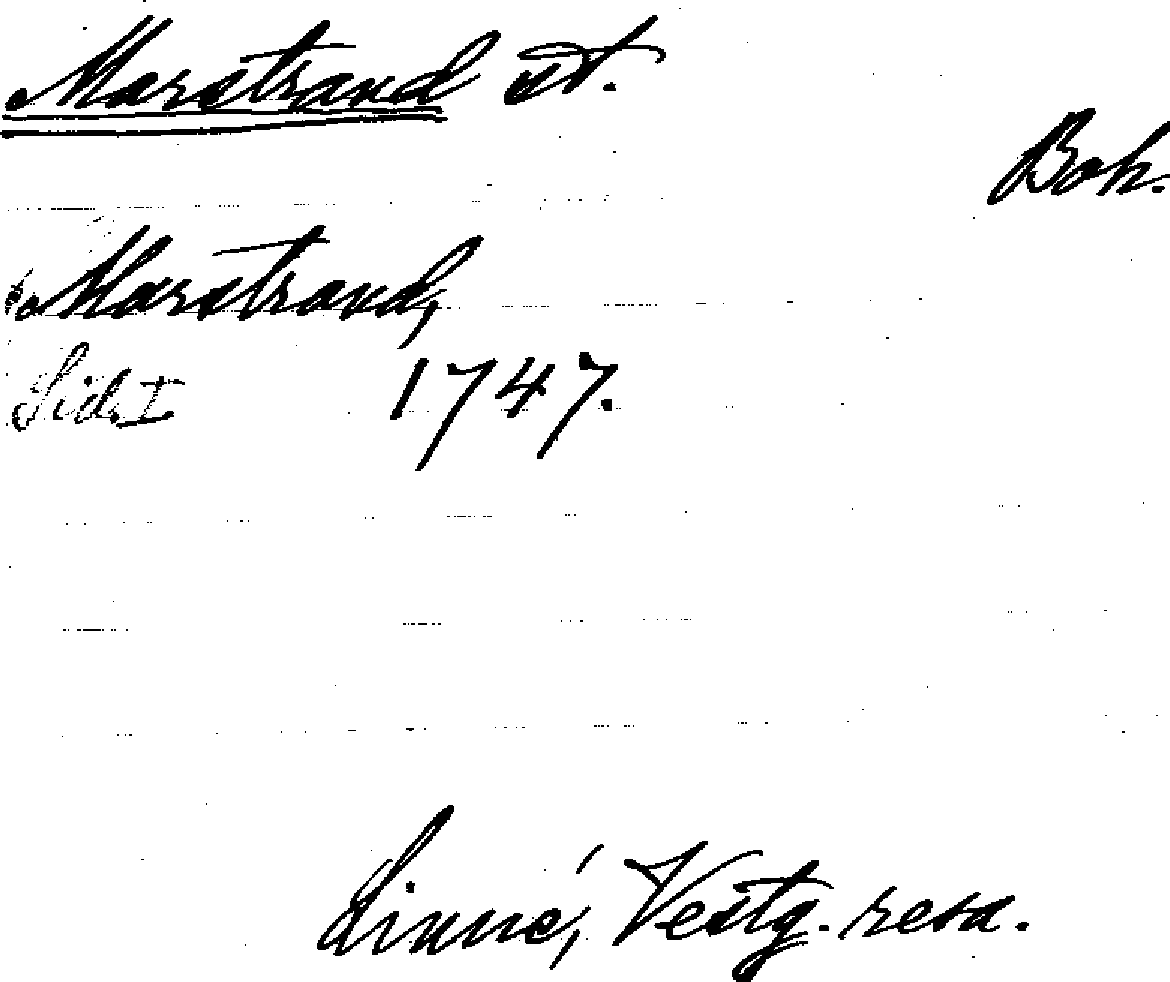 Marstrand st.
Boh.
Marstrand,
Sid. I 1747.
Linné, Vestg. resa.